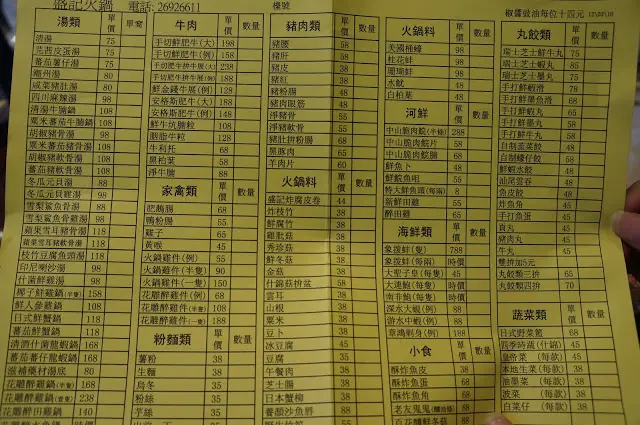 盛記火鍋 電話: 26926611 檯號 椒醬豉油每位十四元
湯類 單價 單窩
清湯 75
芫茜皮蛋湯 75
蕃茄薯仔湯 75
潮州湯 80
咸菜豬肚湯 80
四川麻辣湯 98
清湯牛腩鍋 108
粟米蕃茄牛腩鍋 108
胡椒豬骨湯 98
粟米蕃茄豬骨湯 98
胡椒豬軟骨湯 108
蕃茄豬軟骨湯 108
冬瓜元貝湯 88
冬瓜元貝雞湯 98
雪梨鯊魚骨湯 98
雪梨鯊魚骨雞湯 118
蘋果雪耳豬骨湯 118
蘋果雪耳豬軟骨湯 118
枝竹豆腐魚頭湯 118
印尼喇沙湯 98
什菌鮮雞湯 98
椰子鮮雞鍋(半隻) 158
鮮人參雞鍋 108
日式鮮蟹鍋 118
蕃茄鮮蟹鍋 118
清酒什菌龍蝦鍋 168
蕃茄蕃仔龍蝦鍋 168
滋補藥材湯底 80
花雕醉雞鍋(半隻) 168
花雕醉雞鍋(壹隻) 238
花雕醉田雞鍋 140
牛肉 單價 數量
手切鮮肥牛(大) 198
手切鮮肥牛(例) 158
手切肥牛拼牛展(大) 238
手切肥牛拼牛展(例) 188
鮮金錢牛展(例) 98
安格斯肥牛(大) 188
安格斯肥牛(例) 148
鮮牛坑腩粒 108
胭脂牛粒 128
牛利托 68
黑柏葉 58
淨牛膶 88
家禽類 單價 數量
肥鵝腸 68
鴨粉腸 55
雞子 65
黃喉 45
火鍋雞件(例) 55
火鍋雞件(半隻) 90
火鍋雞件(一隻) 150
花雕醉雞件(例) 68
花雕醉雞件(半隻) 108
花雕醉雞件(一隻) 188
粉麵類 單價 數量
薯粉 38
生麵 38
烏冬 35
粉絲 35
芋絲 35
豬肉類 單價 數量
豬腰 58
豬肝 58
豬皮 38
豬紅 38
豬粉腸 48
豬肉眼筋 48
淨豬骨 55
淨豬軟骨 55
豬肚拼粉腸 68
黑豚肉 65
羊肉片 60
火鍋料 單價 數量
盛記炸腐皮卷 44
炸枝竹 38
鮮腐竹 38
雞肶菇 38
秀珍菇 38
鮮冬菇 38
金菇 38
什錦菇拼盆 58
雲耳 38
山根 38
粟米 38
豆卜 38
冰豆腐 45
豆腐 35
午餐肉 38
芝士腸 38
日本蟹柳 38
養顏沙魚唇 88
火鍋料 單價 數量
美國桶蠔 98
桂花蚌 98
珊瑚蚌 98
水魷 48
白柏葉 48
河鮮 單價 數量
中山脆肉鯇(半條) 288
中山脆肉鯇片 58
中山脆肉鯇腩 68
鮮魚卜 48
鮮鯇魚咀 55
特大鮮魚頭(每兩) 8
新鮮田雞 55
醉田雞 65
海鮮類 單價 數量
象拔蚌(隻) 788
象拔蚌(每兩) 時價
大聖子皇(每隻) 45
大連鮑(每隻) 時價
南非鮑(每隻) 時價
深水大蝦(例) 88
游水中蝦(例) 88
章鴻剌身(例) 188
小食 單價 數量
酥炸魚皮 38
酥炸魚蛋 68
酥炸魚角 68
老友鬼鬼 38
百花酥鮮冬菇 88
丸餃類 單價 數量
瑞士芝士鮮牛丸 75
瑞士芝士蝦丸 85
瑞士芝士墨丸 75
手打鮮蝦滑 78
手打鮮墨魚滑 68
手打鮮蝦丸 78
手打鮮墨丸 58
手打鮮牛丸 58
自制韮菜餃 50
自制蠔仔餃 58
鮮蝦水餃 48
油尾雲吞 48
魚皮餃 48
炸魚角 45
手打魚蛋 45
貢丸 45
豬肉丸 45
牛丸 45
雙拼加5元
丸餃類三拼 65
丸餃類四拼 70
蔬菜類 單價 數量
日式野菜籃 68
四季時蔬(什錦) 45
皇帝菜 (每款) 45
本地生菜 (每款) 38
油墨菜 (每款) 38
菠菜 (每款) 38
白菜仔 (每款) 38